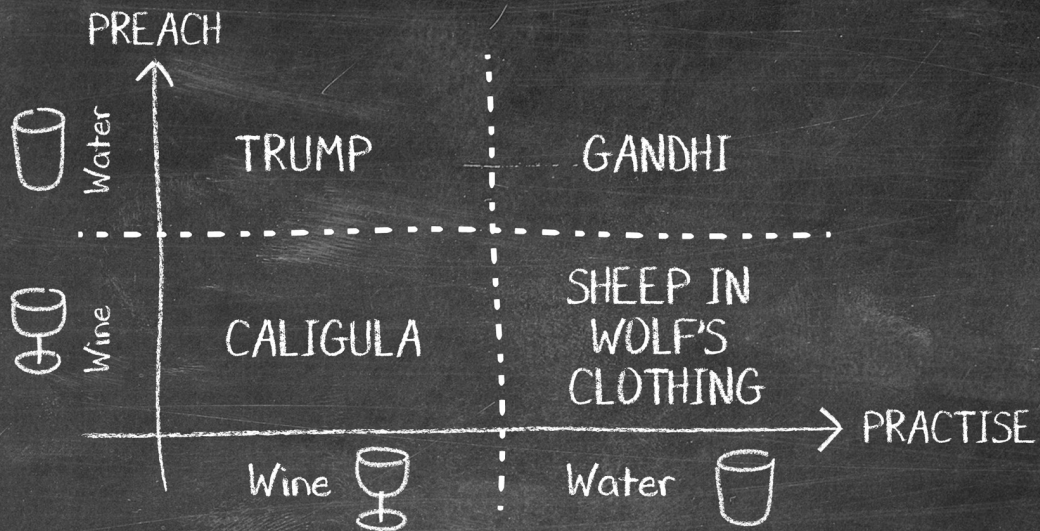 PREACH
Water
TRUMP
GANDHI
Wine
CALIGULA
SHEEP IN
WOLF'S
CLOTHING
PRACTISE
Wine
Water